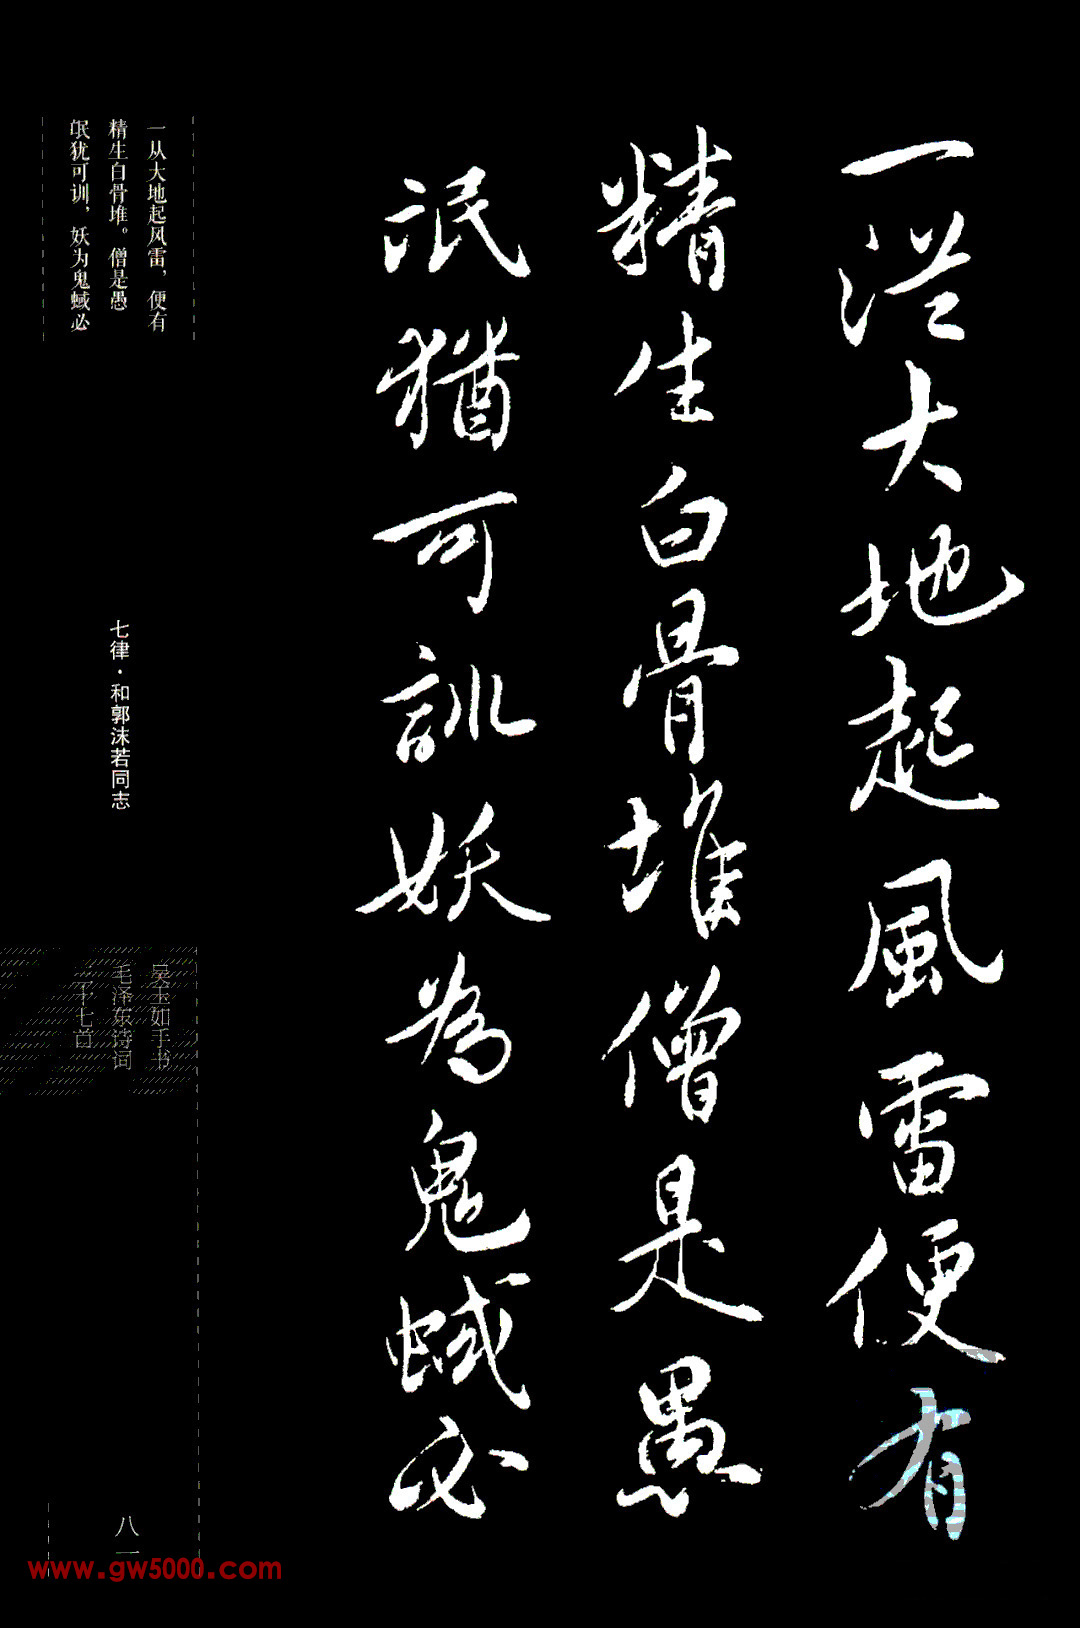 一從大地起風雷便有
精生白骨堆僧是愚
氓猶可訓妖為鬼蜮必
一从大地起风雷，便有
精生白骨堆。僧是愚
氓犹可训，妖为鬼蜮必
七律·和郭沫若同志
吴玉如手书
毛泽东诗词
三十七首
八一
www.gw5000.com